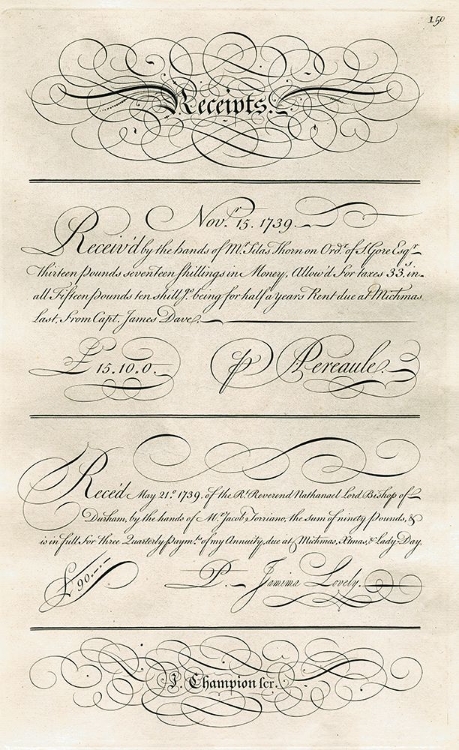 150
Receipts.
Nov.r 15. 1739.
Receiv'd by the hands of M.r Silas Thorn on Ord.r of J. Gore Esq.r
Thirteen Pounds seventeen Shillings in Money, Allow'd for taxes 33.s in
all Fifteen Pounds ten Shill.gs being for half a years Rent due at Michmas
Last, From Capt. James Dave.
£ 15.10.0. P Pereaule.
Rece'd May 21.st 1739. of the R.t Reverend Nathanael Lord Bishop of
Durham, by the hands of M.r Jacob Torriane, the sum of ninety Pounds, &
is in full, for three Quarterly Paym.ts of my Annuity, due at Michmas, Xtmas, & Lady Day.
£ 90. P. Jamima Lovely.
J. Champion scr.